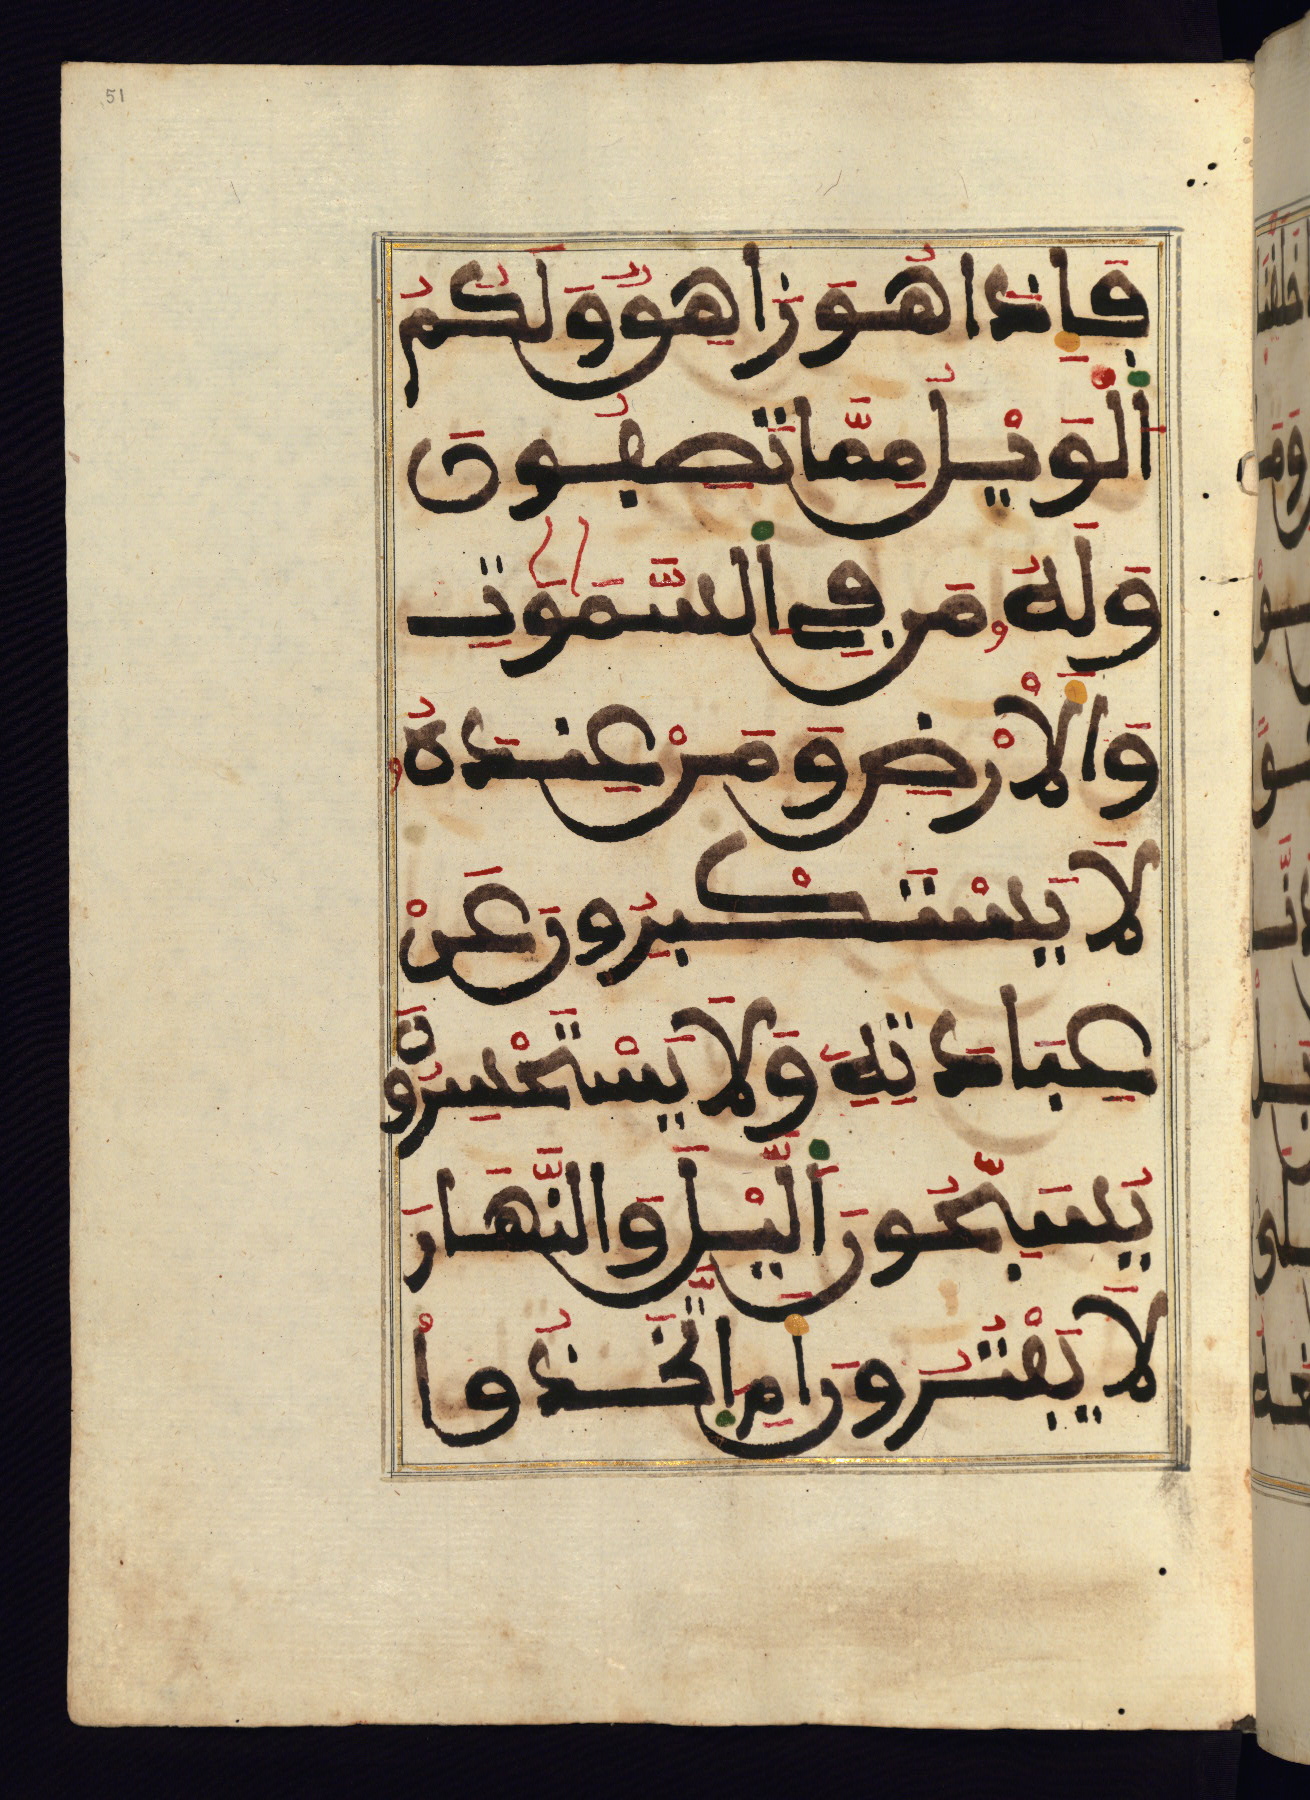 51
فَإِذَا هُوَ زَاهِقٌ وَلَكُمُ
اَلْوَيْلُ مِمَّا تَصِفُونَ
وَلَهُۥ مَن فِي اِلسَّمَٰوَٰتِ
وَالَارْضِ وَمَنْ عِندَهُۥ
لَا يَسْتَكْبِرُونَ عَنْ
عِبَادَتِهِۦ وَلَا يَسْتَحْسِرُونَ
يُسَبِّحُونَ اَلَّيْلَ وَالنَّهَارَ
لَا يَفْتُرُونَ أَمِ اِتَّخَذُواْ